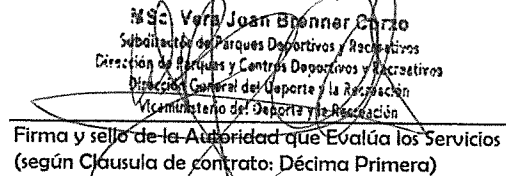 MSc. Vera Joan Brenner Curzo
Subdirector de Parques Deportivos y Recreativos
Dirección de Parques y Centros Deportivos y Recreativos
Dirección General del Deporte y la Recreación
Viceministerio del Deporte y la Recreación
Firma y sello de la Autoridad que Evalúa los Servicios
(según Clausula de contrato: Décima Primera)